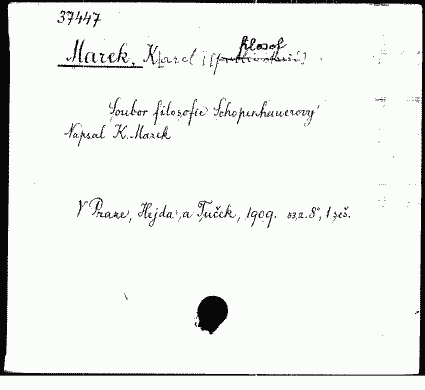 37447
filosof
Marek, Karel
Soubor filosofie Schopenhauerovy
Napsal K. Marek
V Praze, Hejda a Tuček, 1909. 8°, 1 seš.